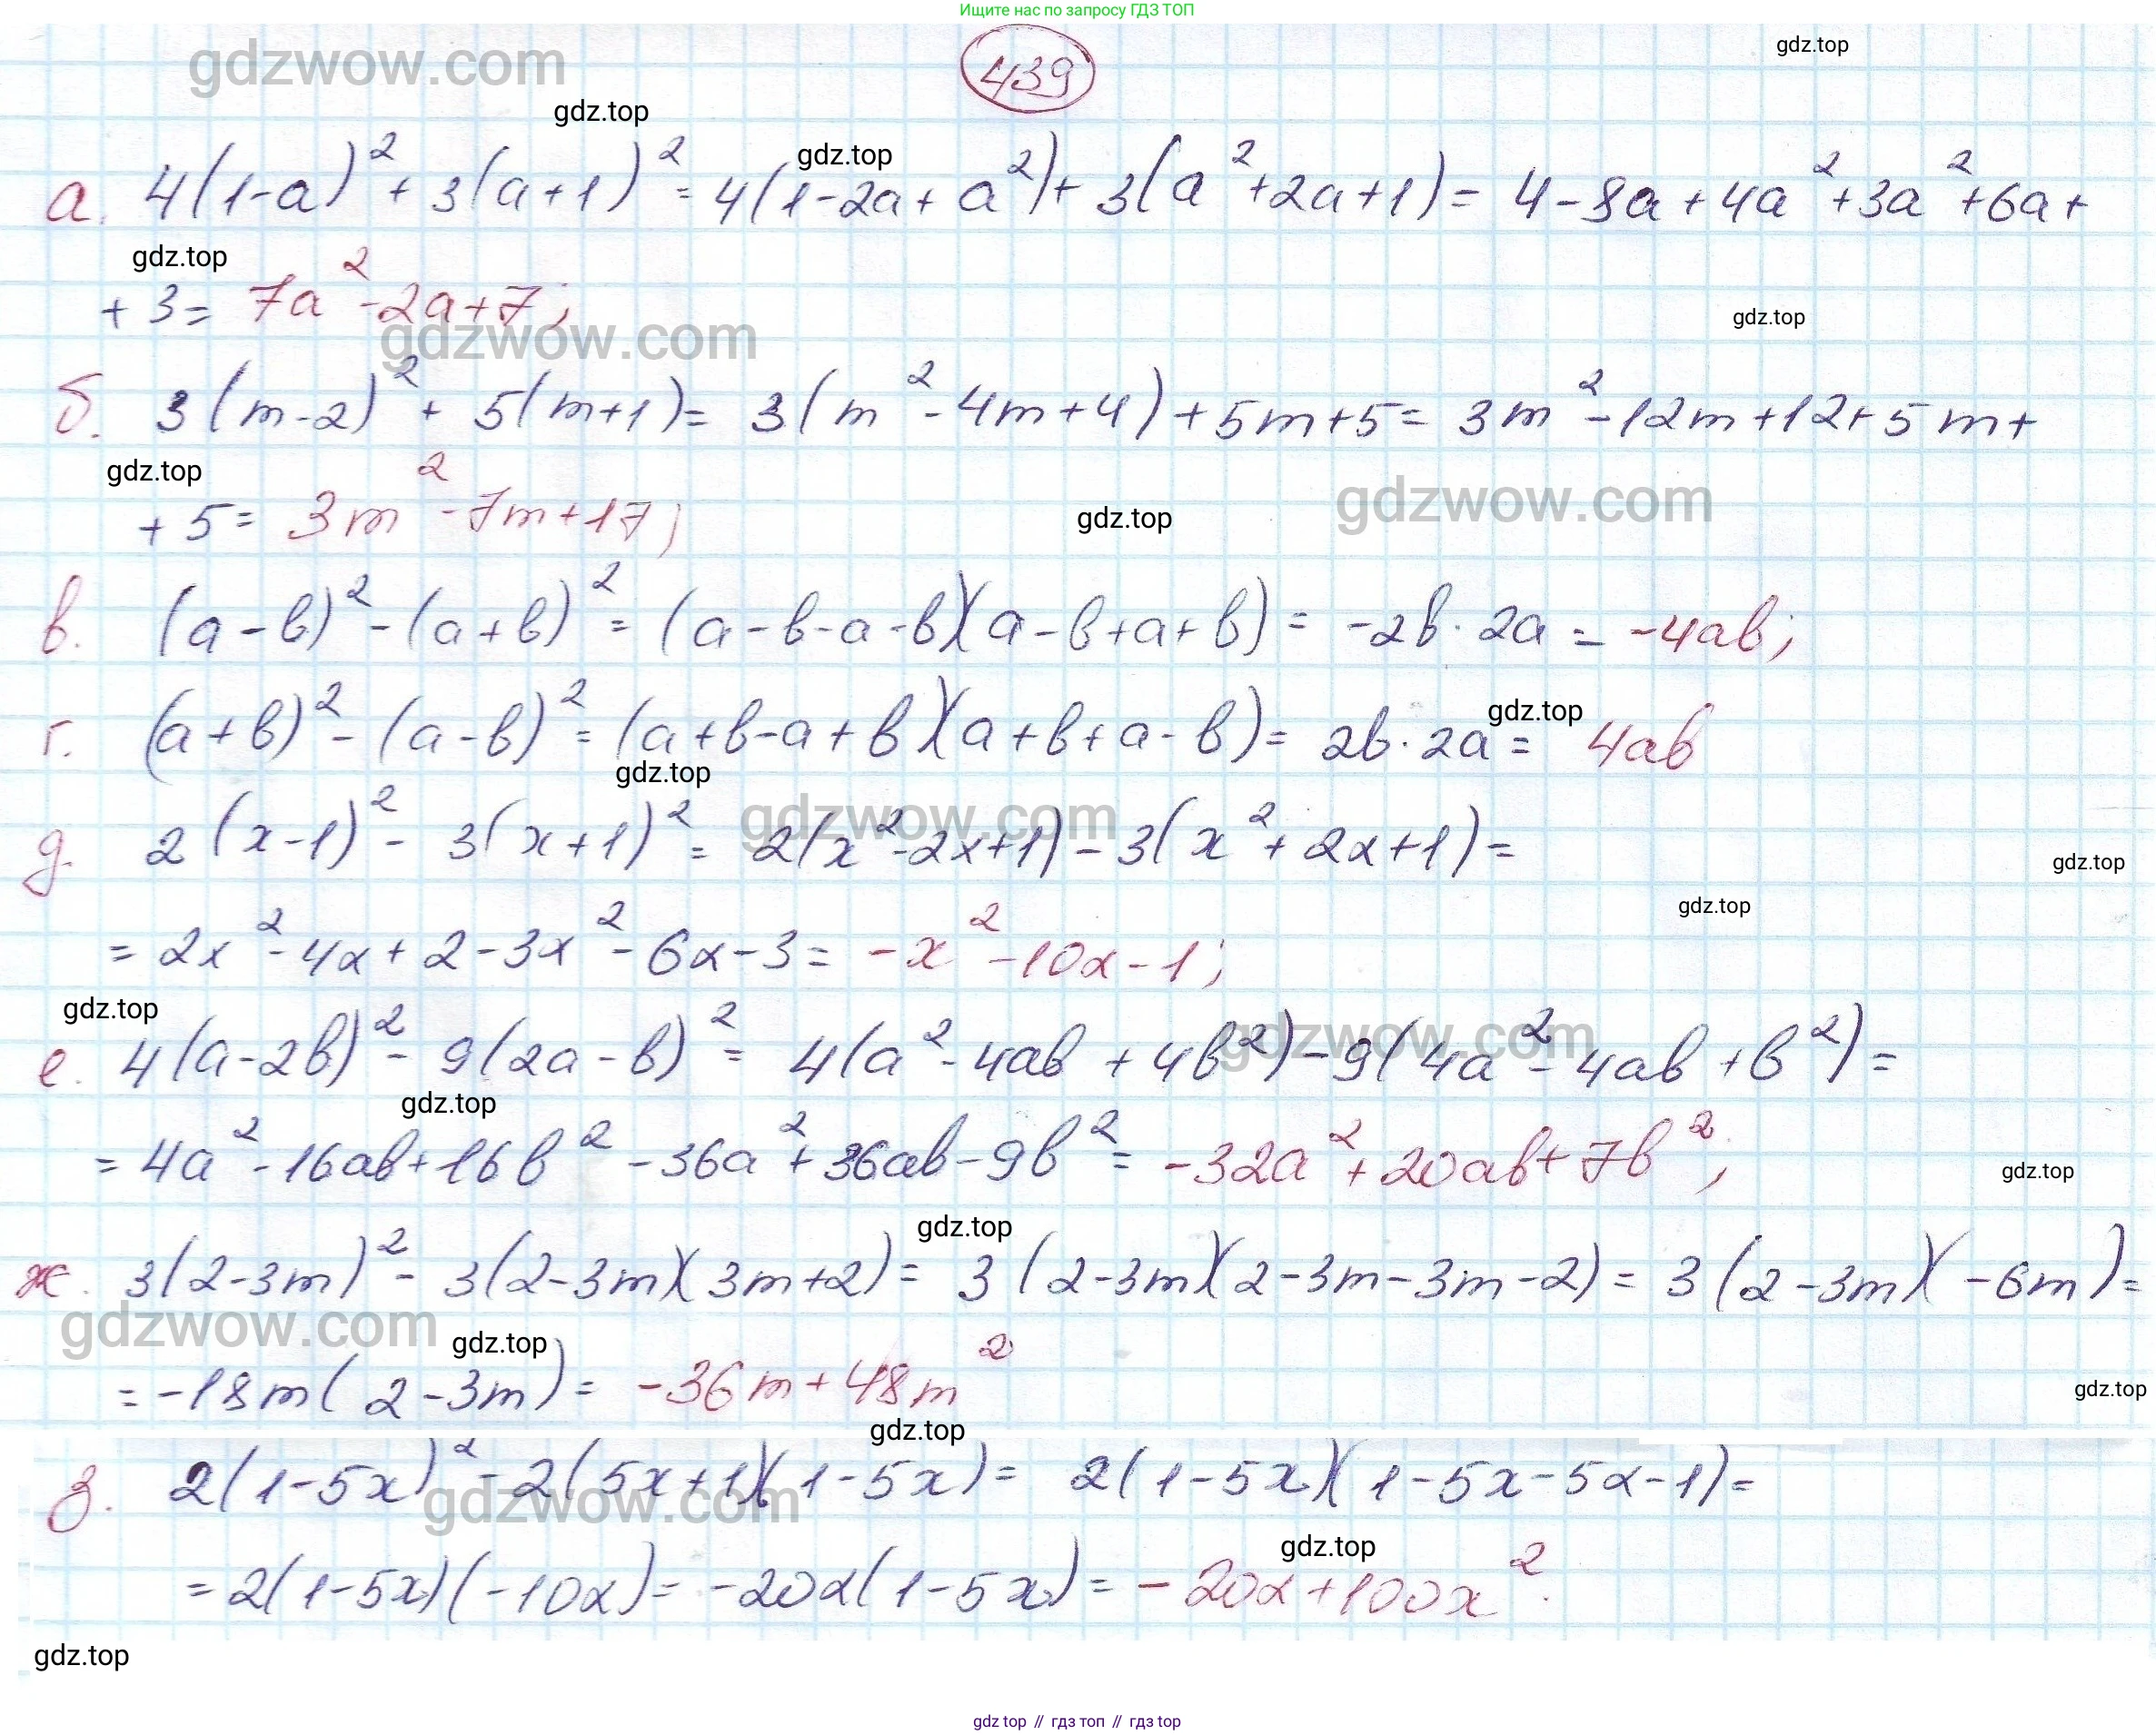 Ищите нас по запросу ГДЗ ТОП
439
gdz.top
gdzwow.com
gdz.top
gdz.top
а. 4(1-a)² + 3(a+1)² = 4(1-2a+a²)+3(a²+2a+1)= 4-8a+4a²+3a²+6a+
gdz.top
+3= 7a²-2a+7;
gdzwow.com
gdz.top
б. 3(m-2)² + 5(m+1)= 3(m²-4m+4)+5m+5= 3m²-12m+12+5m+
gdz.top
+5= 3m²-7m+17;
gdz.top
gdzwow.com
в. (a-b)²-(a+b)²= (a-b-a-b)(a-b+a+b)= -2b·2a= -4ab;
г. (a+b)²-(a-b)²= (a+b-a+b)(a+b+a-b)= 2b·2a= 4ab
gdz.top
gdz.top
gdzwow.com
д. 2(x-1)²- 3(x+1)²= 2(x²-2x+1)-3(x²+2x+1)=
gdz.top
gdz.top
= 2x²-4x+2-3x²-6x-3= -x²-10x-1;
gdz.top
gdzwow.com
е. 4(a-2b)²- 9(2a-b)²= 4(a²-4ab+4b²)-9(4a²-4ab+b²)=
gdz.top
= 4a²-16ab+16b²-36a²+36ab-9b²= -32a²+20ab+7b²;
gdz.top
gdz.top
ж. 3(2-3m)²- 3(2-3m)(3m+2)= 3(2-3m)(2-3m-3m-2)= 3(2-3m)(-6m)=
gdzwow.com
gdz.top
= -18m(2-3m)= -36m+48m²
gdz.top
gdz.top
з. 2(1-5x)²-2(5x+1)(1-5x)= 2(1-5x)(1-5x-5x-1)=
gdzwow.com
gdz.top
= 2(1-5x)(-10x)= -20x(1-5x)= -20x+100x².
gdz.top
gdz top // гдз топ // гдз top